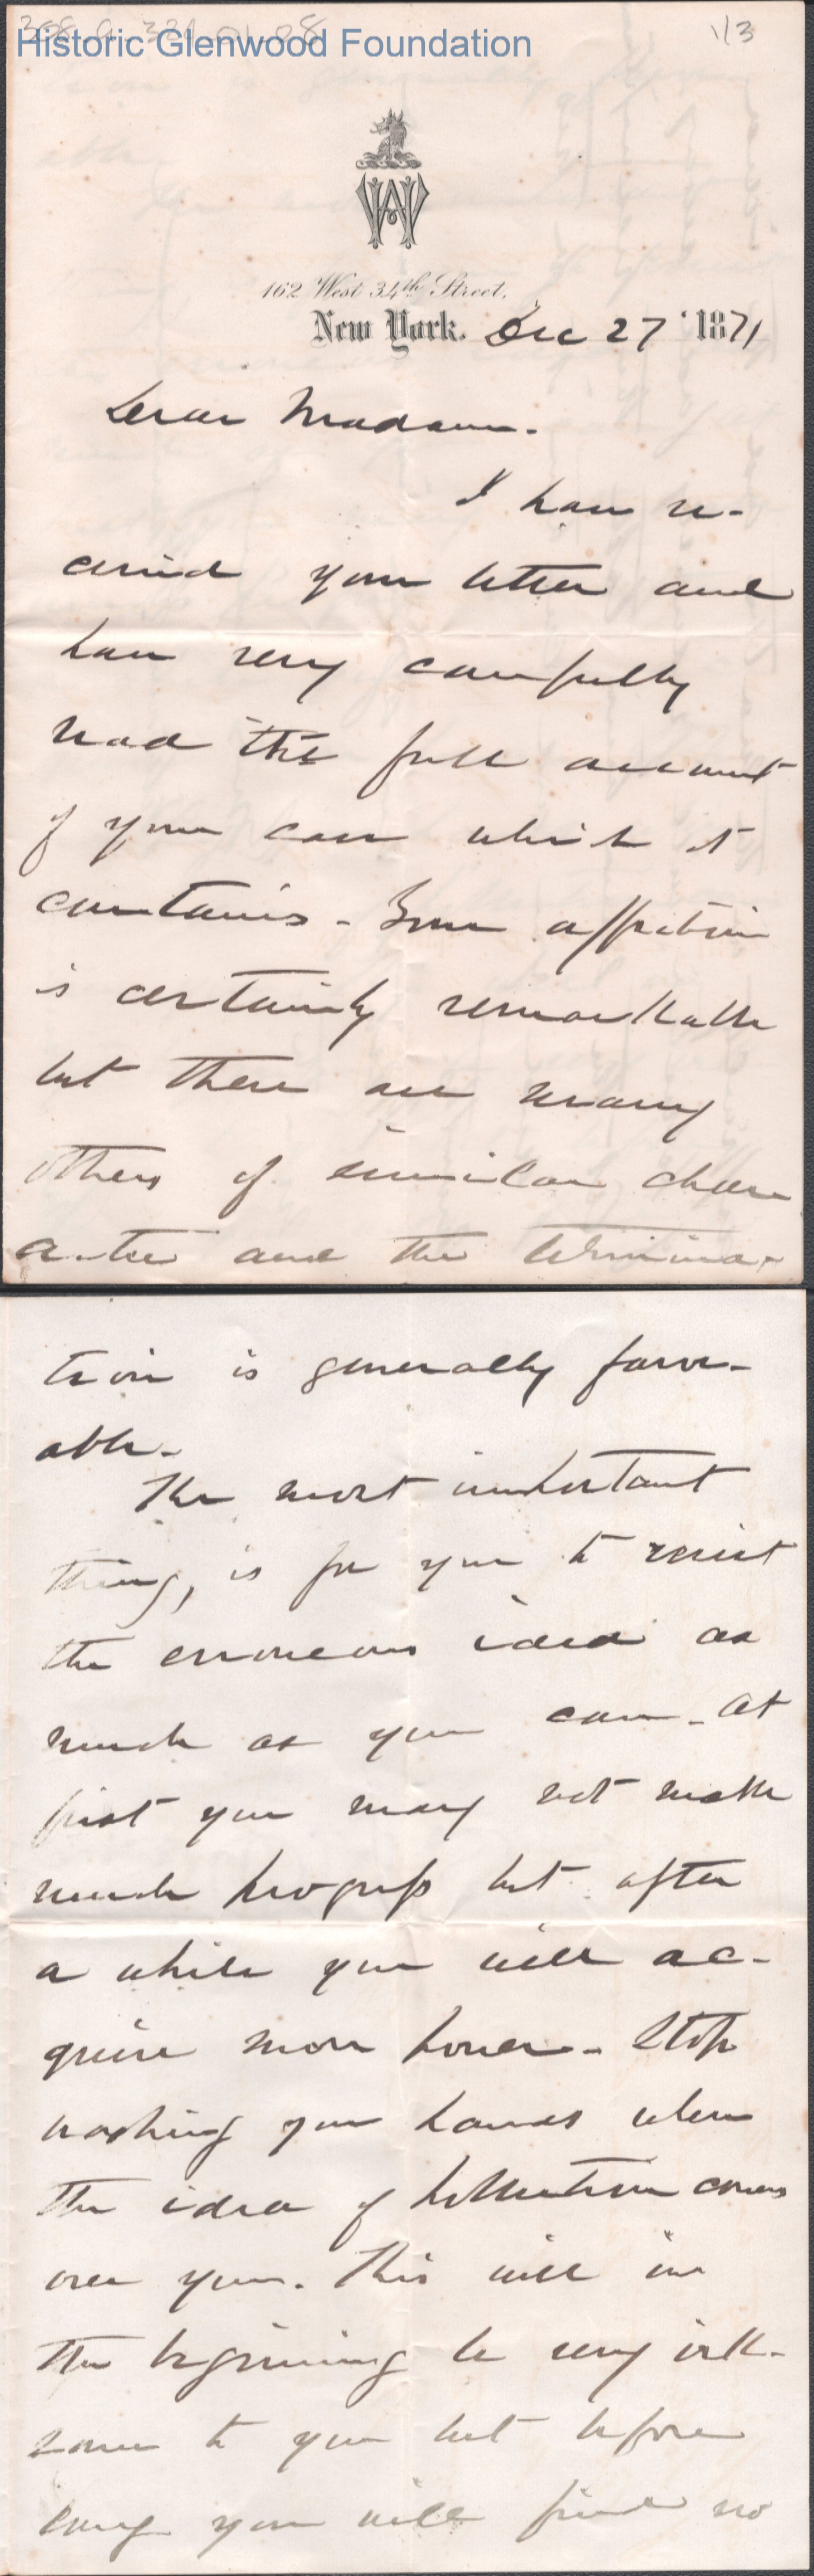 308.a.321.01.08
Historic Glenwood Foundation
1/3
WAH
162 West 34th Street,
New York. Dec 27 1871
Dear Madam.
I have re-
ceived your letter and
have very carefully
read the full account
of your case which it
contains - Your affection
is certainly remarkable
but there are many
others of similar char
acter and the termina-
tion is generally favor-
able.
The most important
thing, is for you to resist
the erroneous idea as
much as you can - At
first you may not make
much progress but after
a while you will ac-
quire more power - Stop
washing your hands when
the idea of pollution comes
over you. This will in
the beginning be very irk-
some to you but before
long you will find no